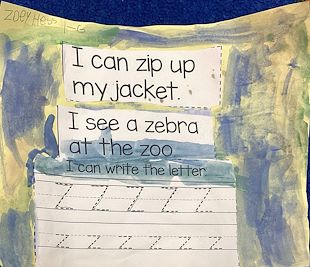 I can zip up
my jacket.
I see a zebra
at the zoo
I can write the letter
Z Z Z Z Z Z
z z z z z z